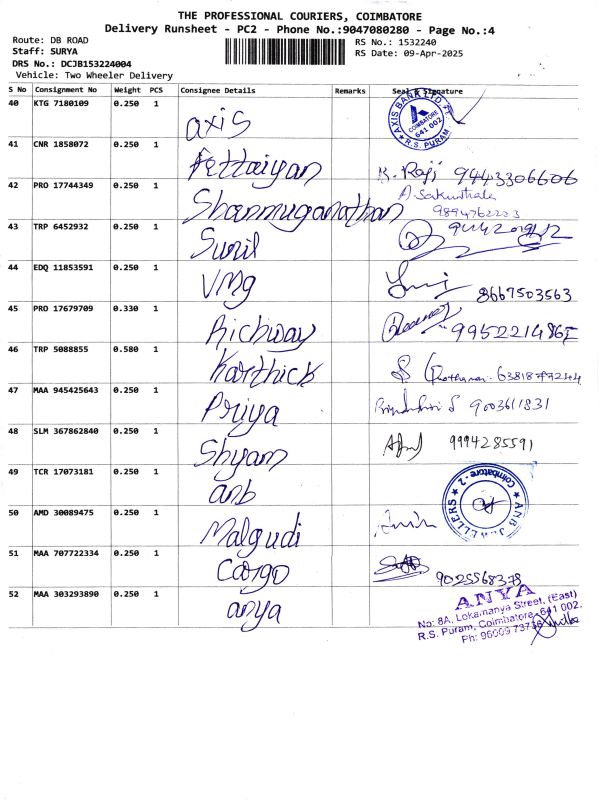 THE PROFESSIONAL COURIERS, COIMBATORE
Delivery Runsheet - PC2 - Phone No.:9047080280 - Page No.:4
Route: DB ROAD
Staff: SURYA
DRS No.: DCJB153224004
Vehicle: Two Wheeler Delivery
RS No.: 1532240
RS Date: 09-Apr-2025
S No Consignment No Weight PCS Consignee Details Remarks Seal & Signature
40 KTG 7180109 0.250 1 axis
AXIS BANK LTD
COIMBATORE
641 002
R.S. PURAM
41 CNR 1858072 0.250 1 Pettaiyan K. Raji 9443306606
42 PRO 17744349 0.250 1 Shanmuganathan A. Sakunthala
43 TRP 6452932 0.250 1 Sunil
44 EDQ 11853591 0.250 1 VMg 8667503563
45 PRO 17679709 0.330 1 Richway
46 TRP 5088855 0.580 1 Karthick
47 MAA 945425643 0.250 1 Priya 9003611831
48 SLM 367862840 0.250 1 Shyam 9994285591
49 TCR 17073181 0.250 1 anb
ANB JEWELLERS
Coimbatore - 2
50 AMD 30089475 0.250 1 Malgudi
51 MAA 707722334 0.250 1 Cargo 9025568378
52 MAA 303293890 0.250 1 anya
ANYA
No: 8A, Lokamanya Street, (East)
R.S. Puram, Coimbatore - 641 002.
Ph: 96009